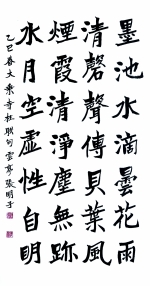 墨池水滴曇花雨
清磬聲傳貝葉風
煙霞清淨塵無跡
水月空虛性自明
乙巳春大乘寺柱聯句雲亭張明子